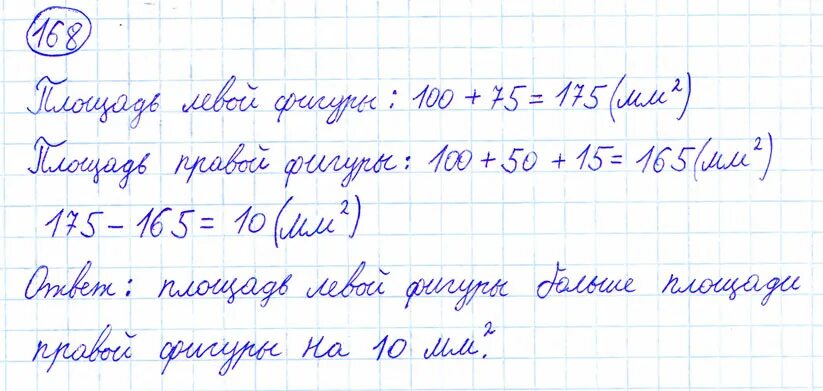 168
Площадь левой фигуры: 100 + 75 = 175 (мм²)
Площадь правой фигуры: 100 + 50 + 15 = 165 (мм²)
175 – 165 = 10 (мм²)
Ответ: площадь левой фигуры больше площади
правой фигуры на 10 мм².